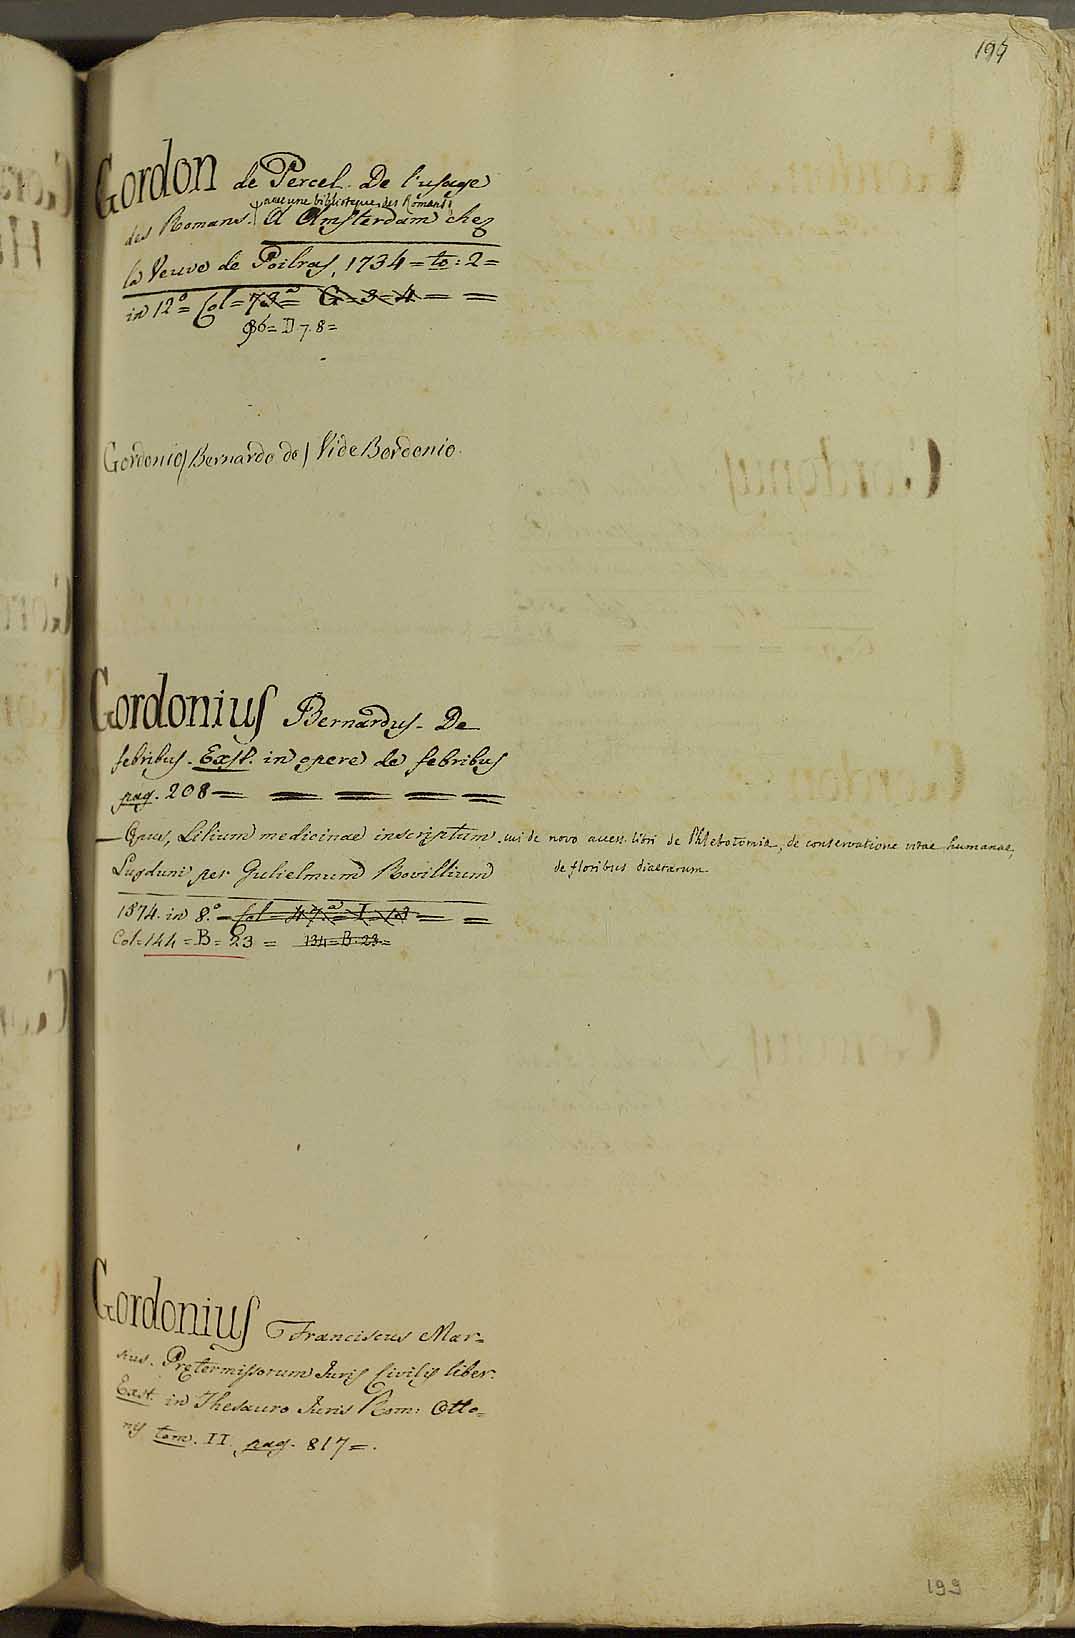 194
Gordon de Percel. De l'usage
(avec une biblioteque des Romans)
des Romans. A Amsterdam chez
la Veuve de Poilras, 1734 = to: 2 =
in 12° = Col = 73ª = G = 3 = 4 = =
96 = D. 7. 8 =
Gordonio (Bernardo de) Vide Bordonio.
Gordonius Bernardus. De
febribus. Exst. in opere de febribus
pag. 208 = = = = =
— Opus, Lilium medicinae inscriptum. cui de novo access. libri de Phlebotomia, de conservatione vitae humanae,
de floribus diaetarum
Lugduni per Gulielmum Rovillium
1574. in 8.° = Col = 47ª = I = 12 = =
Col = 144 = B = 23 = 134 = B. 23 =
Gordonius Franciscus Mar=
sius. Prętermissorum Juris Civilis liber.
Exst. in Thesauro Juris Rom: Otto=
nis tom. II. pag. 817 =.
199